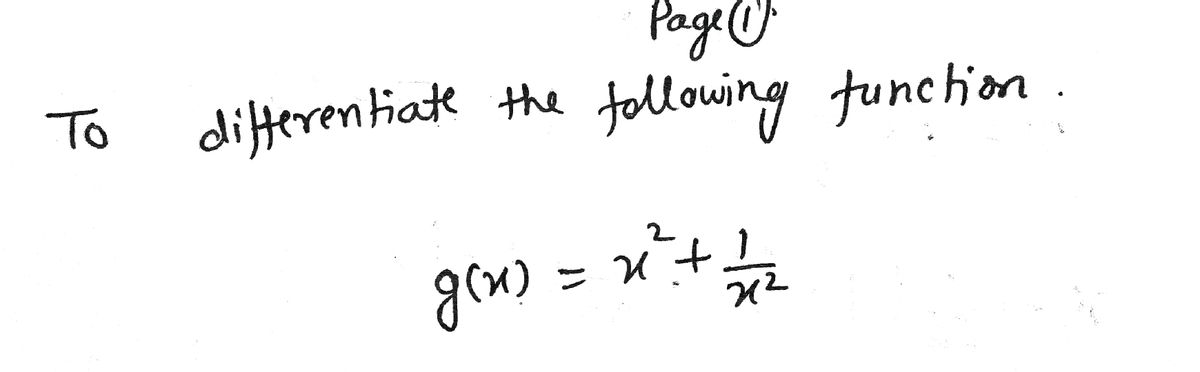 Page ①.
To differentiate the following function.
g(x) = x² + 1/x²